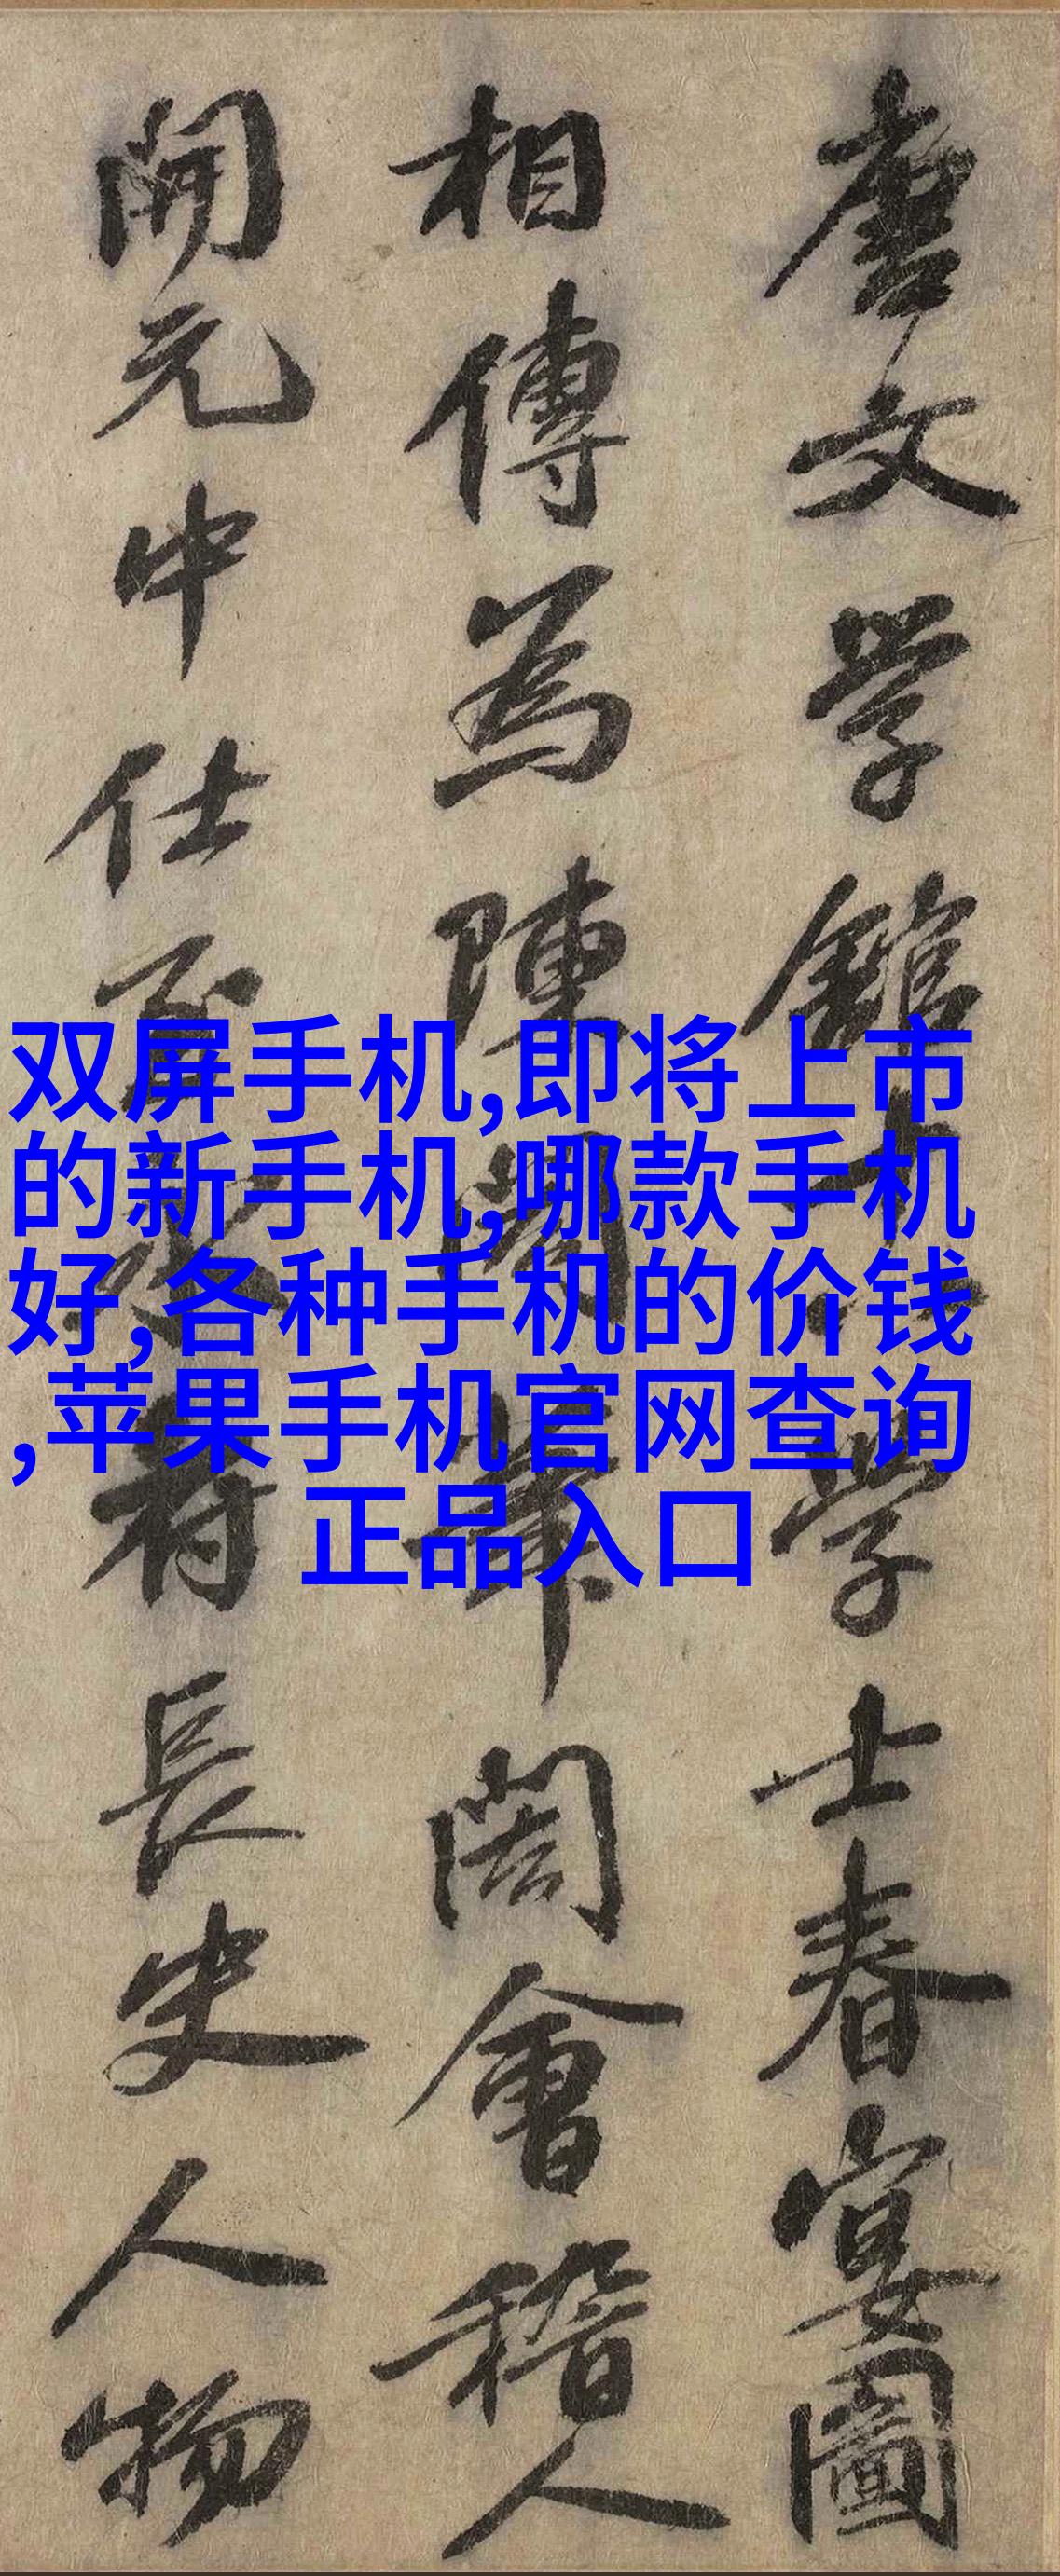 唐文学館十八学士春宴圖
相傳為陳閎筆閎會稽人
開元中仕至府長史人物
双屏手机,即将上市
的新手机,哪款手机
好,各种手机的价钱
,苹果手机官网查询
正品入口